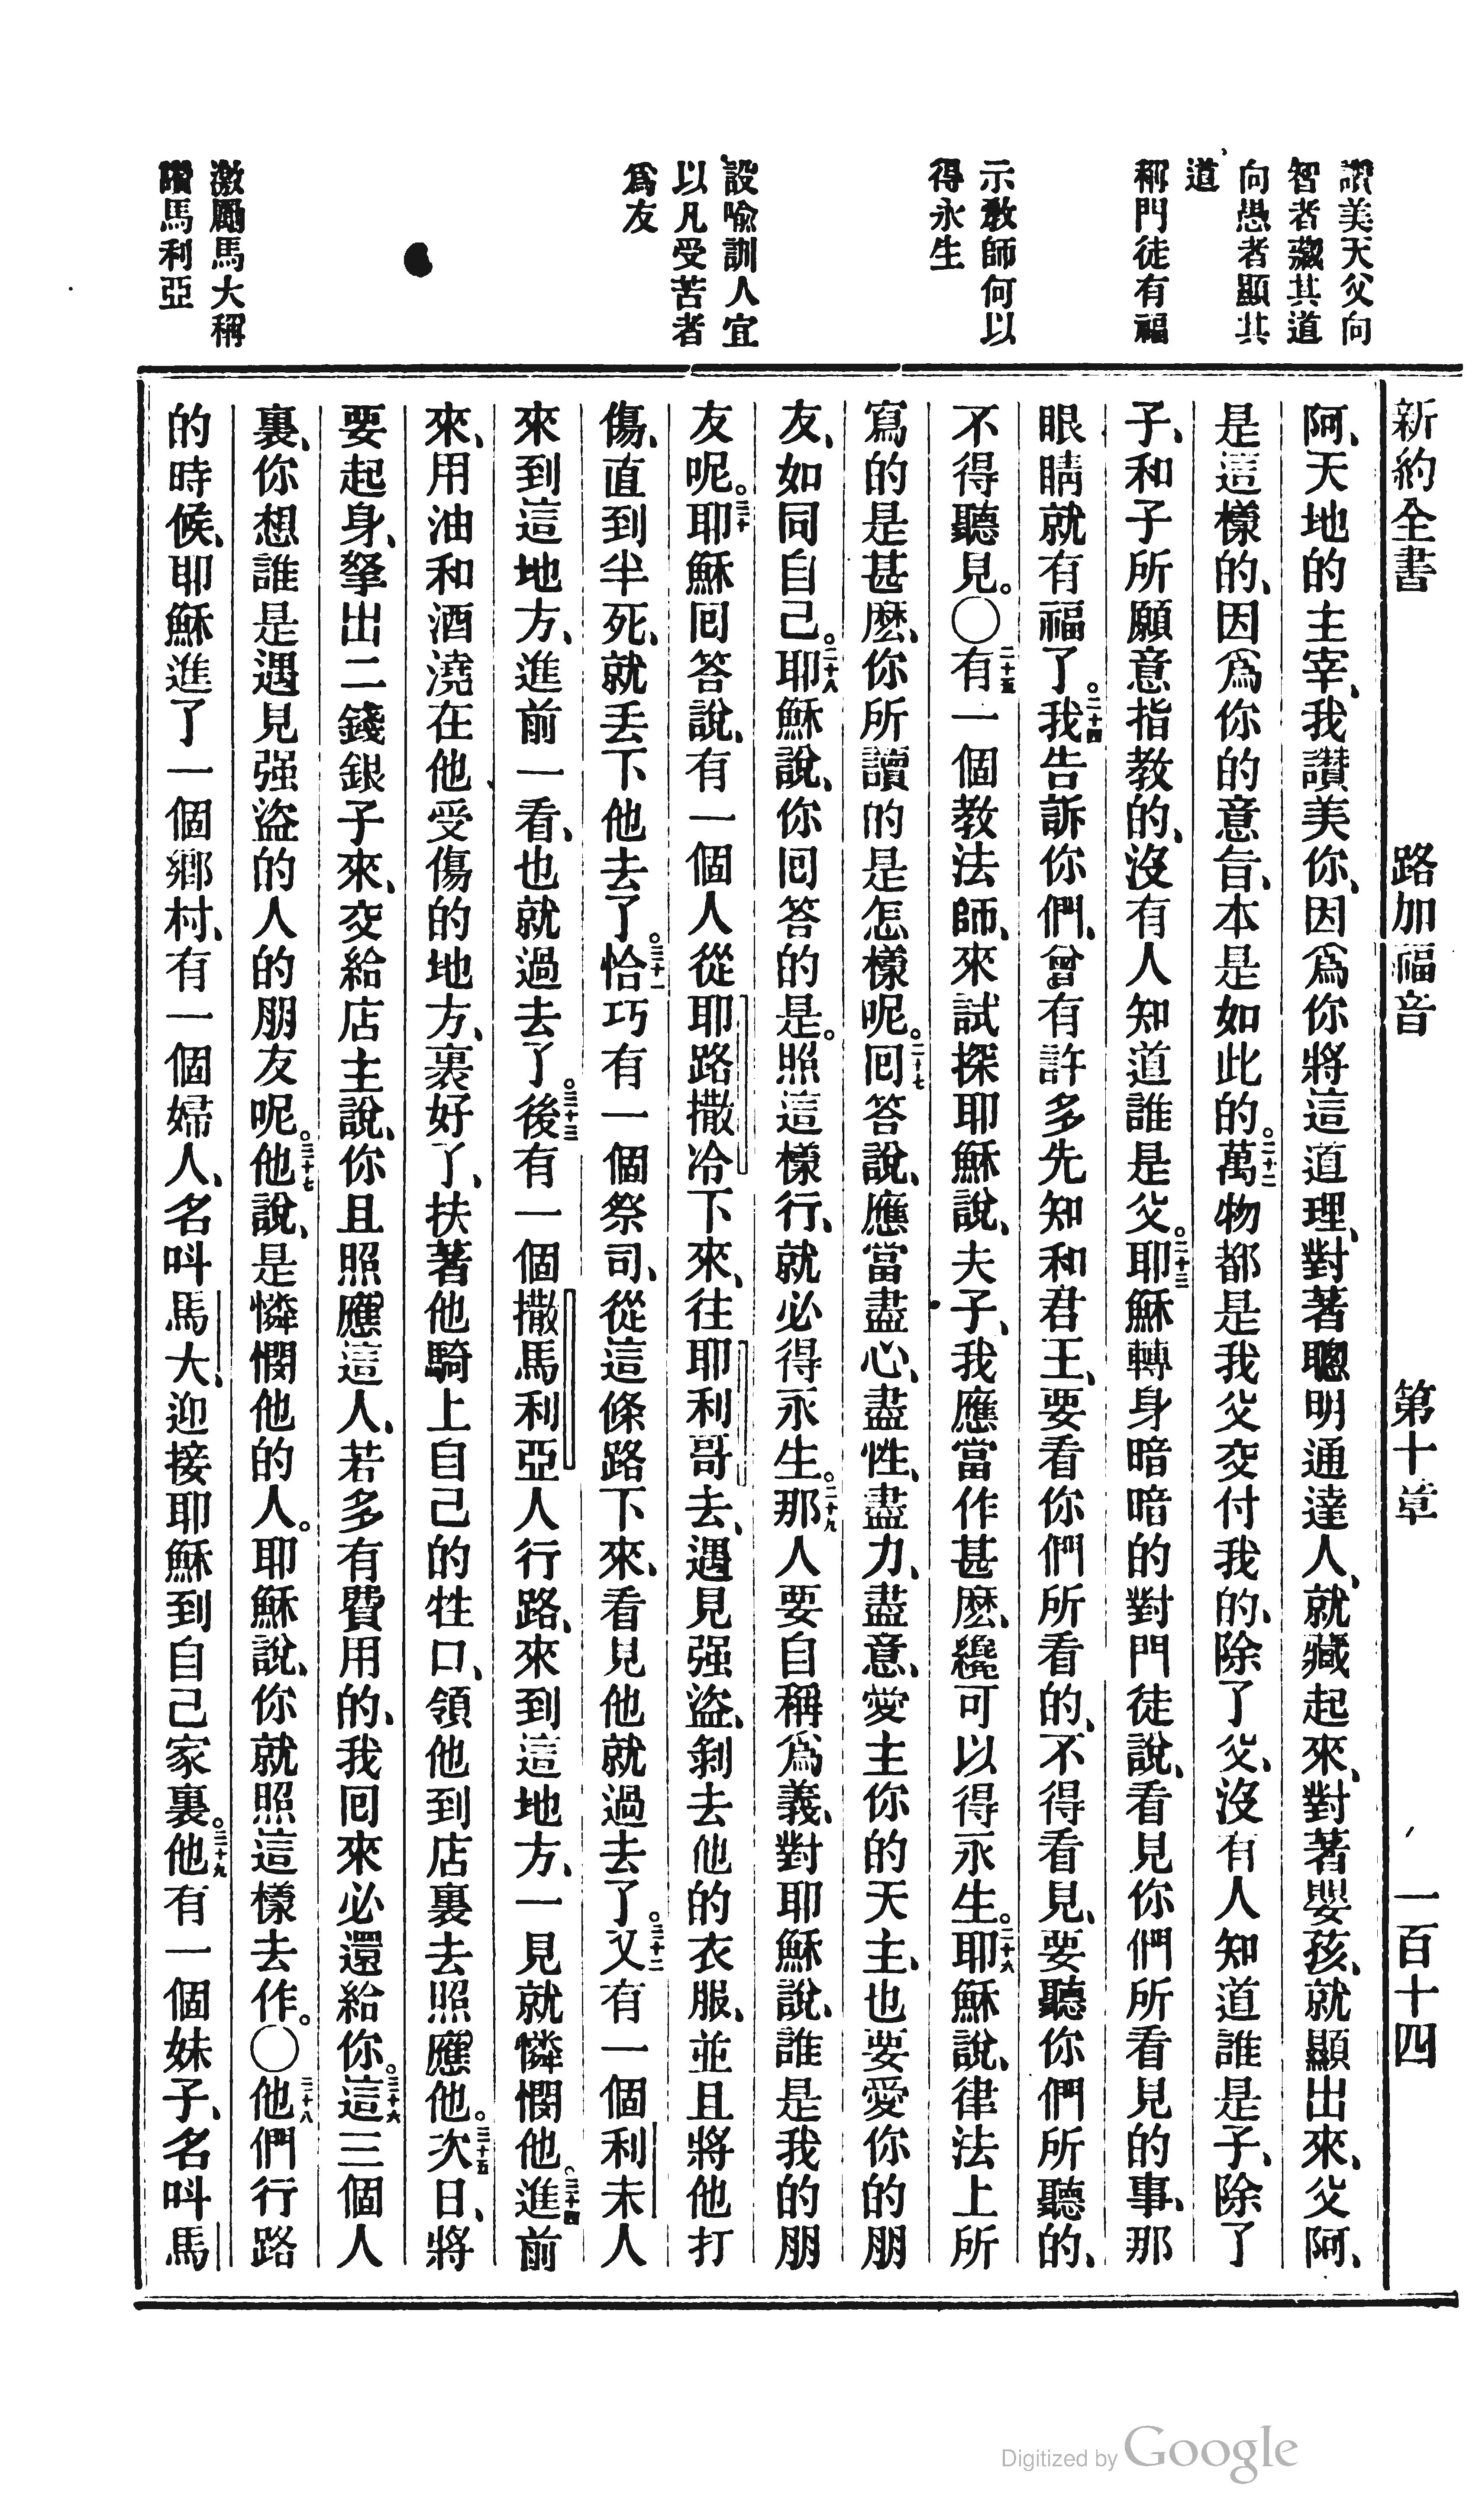 新約全書　路加福音　第十章　一百十四
讚美天父向
智者藏其道
向愚者顯其
道
稱門徒有福
示教師何以
得永生
設喻訓人宜
以凡受苦者
爲友
激勵馬大稱
讚馬利亞
阿、天地的主宰、我讚美你、因爲你將這道理、對著聰明通達人、就藏起來、對著嬰孩、就顯出來、父阿、
是這樣的、因爲你的意旨、本是如此的。二十二萬物都是我父交付我的、除了父、沒有人知道誰是子、除了
子、和子所願意指教的、沒有人知道誰是父。二十三耶穌轉身暗暗的對門徒說、看見你們所看見的事、那
眼睛就有福了。二十四我告訴你們、曾有許多先知和君王、要看你們所看的、不得看見、要聽你們所聽的、
不得聽見。〇二十五有一個教法師、來試探耶穌說、夫子、我應當作甚麽、纔可以得永生。二十六耶穌說、律法上所
寫的是甚麽、你所讀的是怎樣呢。二十七回答說、應當盡心、盡性、盡力、盡意、愛主你的天主、也要愛你的朋
友、如同自己。二十八耶穌說、你回答的是。照這樣行、就必得永生。二十九那人要自稱爲義、對耶穌說、誰是我的朋
友呢。三十耶穌回答說、有一個人從耶路撒冷下來、往耶利哥去、遇見强盜、剝去他的衣服、並且將他打
傷、直到半死、就丢下他去了。三十一恰巧有一個祭司、從這條路下來、看見他就過去了。三十二又有一個利未人
來到這地方、進前一看、也就過去了。三十三後有一個撒馬利亞人行路、來到這地方、一見就憐憫他。三十四進前
來、用油和酒澆在他受傷的地方、裹好了、扶著他騎上自己的牲口、領他到店裏去照應他。三十五次日、將
要起身、拏出二錢銀子來、交給店主說、你且照應這人、若多有費用的、我回來必還給你。三十六這三個人
裏、你想誰是遇見强盜的人的朋友呢。三十七他說、是憐憫他的人。耶穌說、你就照這樣去作。〇三十八他們行路
的時候、耶穌進了一個鄉村、有一個婦人、名呌馬大、迎接耶穌到自己家裏。三十九他有一個妹子、名呌馬
Digitized by Google